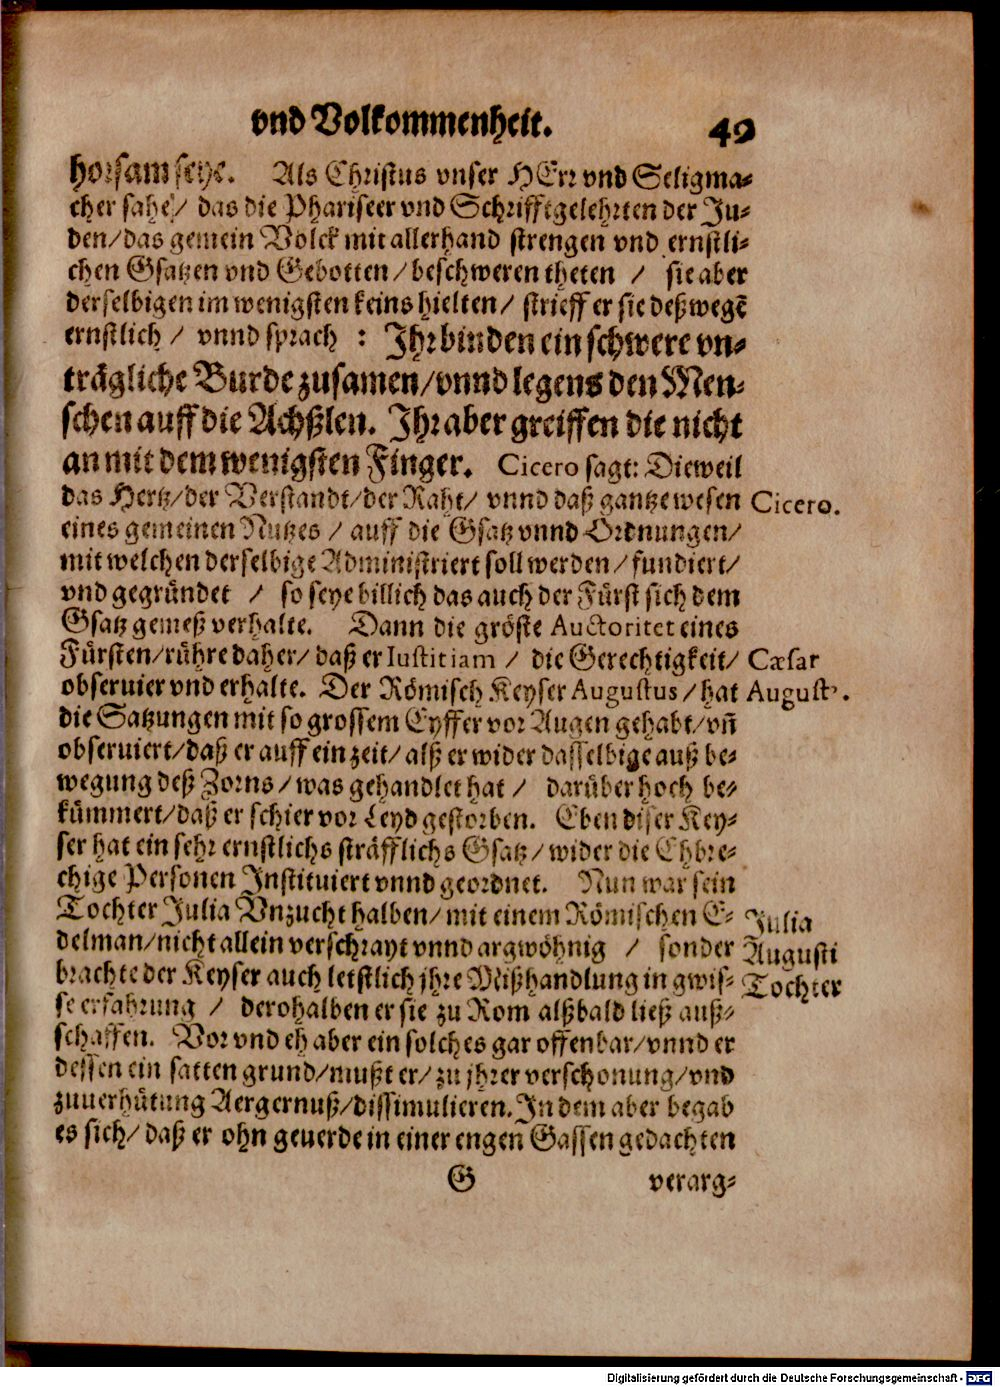 vnd Volkommenheit. 49
horsam seye. Als Christus vnser HErr vnd Seligma-
cher sahe/ das die Phariseer vnd Schrifftgelehrten der Ju-
den/das gemein Volck mit allerhand strengen vnd ernstli-
chen Gsatzen vnd Gebotten/beschweren theten / sie aber
derselbigen im wenigsten keins hielten/ strieff er sie deßwegē
ernstlich / vnnd sprach : Jhr binden ein schwere vn-
trägliche Burde zusamen/vnnd legens den Men-
schen auff die Achßlen. Jhr aber greiffen die nicht
an mit dem wenigsten Finger. Cicero sagt: Dieweil
das Hertz/der Verstandt/der Raht/ vnnd daß gantze wesen Cicero.
eines gemeinen Nutzes / auff die Gsatz vnnd Ordnungen/
mit welchen derselbige Administriert soll werden/fundiert/
vnd gegründet / so seye billich das auch der Fürst sich dem
Gsatz gemeß verhalte. Dann die gröste Auctoritet eines
Fürsten/rühre daher/daß er Iustitiam / die Gerechtigkeit/ Cæsar
obseruier vnd erhalte. Der Römisch Keyser Augustus/hat August⁹.
die Satzungen mit so grossem Eyffer vor Augen gehabt/vñ
obseruiert/daß er auff ein zeit/alß er wider dasselbige auß be-
wegung deß Zorns/was gehandlet hat / darüber hoch be-
kümmert/daß er schier vor Leyd gestorben. Eben diser Key-
ser hat ein sehr ernstlichs sträfflichs Gsatz/wider die Ehbre-
chige Personen Instituiert vnnd geordnet. Nun war sein
Tochter Julia Vnzucht halben/mit einem Römischen E- Julia
delman/nicht allein verschrayt vnnd argwöhnig / sonder Augusti
brachte der Keyser auch letstlich jhre Mißhandlung in gwis- Tochter
se erfahrung / derohalben er sie zu Rom alßbald ließ auß-
schaffen. Vor vnd eh aber ein solches gar offenbar/vnnd er
dessen ein satten grund/mußt er/zu jhrer verschonung/vnd
zuuerhütung Aergernuß/dissimulieren. In dem aber begab
es sich/daß er ohn geuerde in einer engen Gassen gedachten
G verarg-
Digitalisierung gefördert durch die Deutsche Forschungsgemeinschaft - DFG